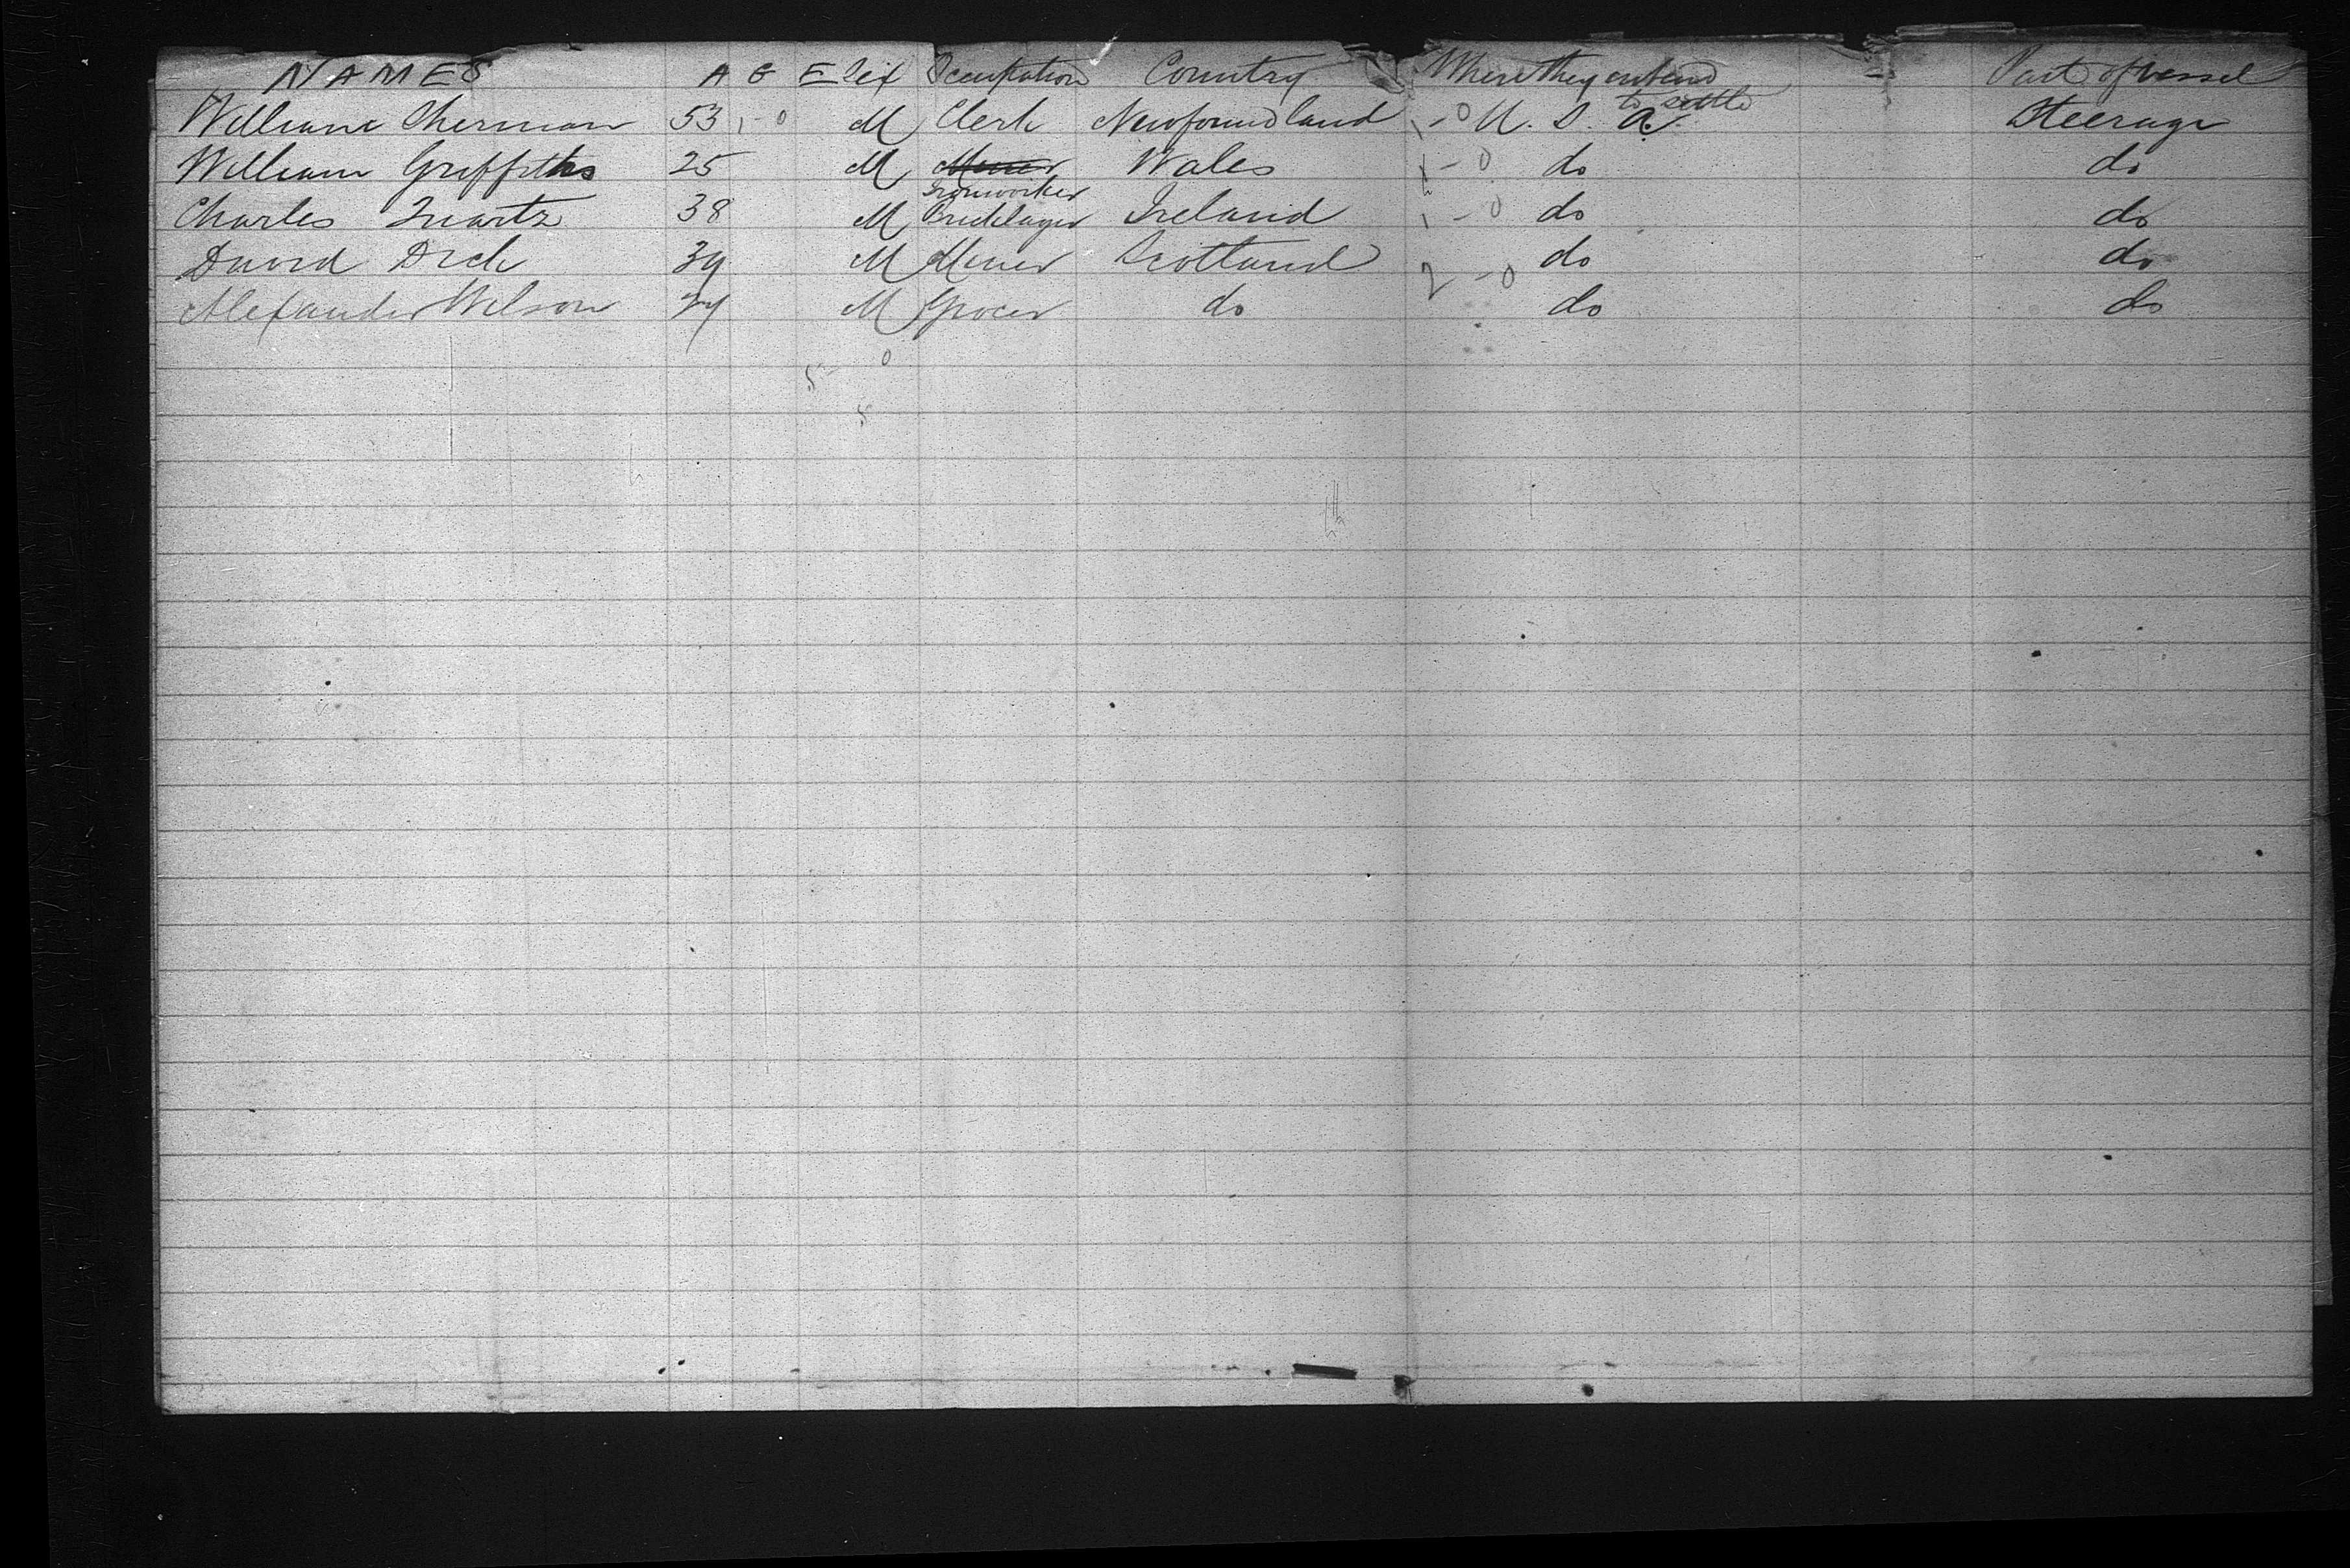 NAMES AGE Sex Occupation Country Where they intend to settle Part of vessel
William Sherman 53 1-0 M Clerk Newfoundland 1-0 U. S. A. Steerage
William Griffiths 25 M Ironworker Wales 1-0 do do
Charles 38 M Bricklayer Ireland 1-0 do do
David Dick 39 M Miner Scotland 2-0 do do
Alexander Wilson M Grocer do do do
5-0
5